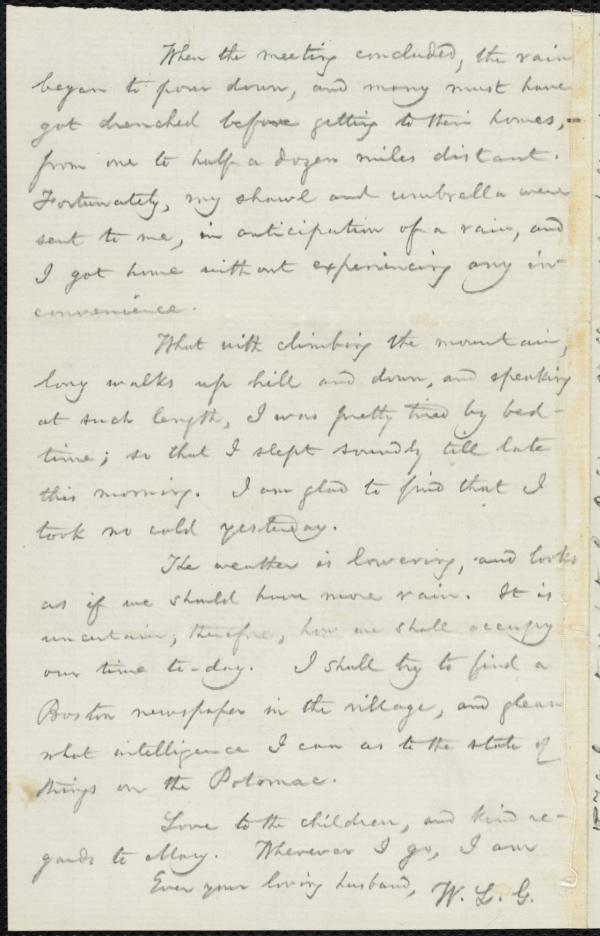 When the meeting concluded, the rain
began to pour down, and many must have
got drenched before getting to their homes,—
from one to half a dozen miles distant.
Fortunately, my shawl and umbrella were
sent to me, in anticipation of a rain, and
I got home without experiencing any in-
convenience.
What with climbing the mountain,
long walks up hill and down, and speaking
at such length, I was pretty tired by bed-
time; so that I slept soundly till late
this morning. I am glad to find that I
took no cold yesterday.
The weather is lowering, and looks
as if we should have more rain. It is
uncertain, therefore, how we shall occupy
our time to-day. I shall try to find a
Boston newspaper in the village, and glean
what intelligence I can as to the state of
things on the Potomac.
Love to the children, and kind re-
gards to Mary. Wherever I go, I am
Ever your loving husband, W. L. G.